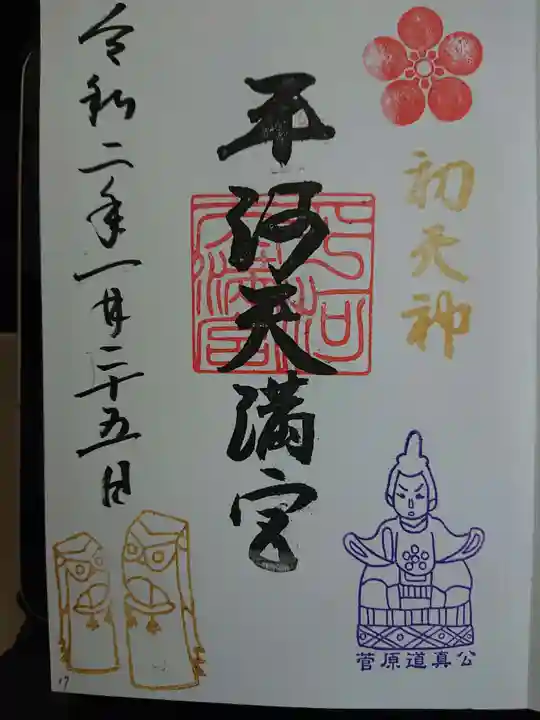 初天神
平河天満宮
平河天満宮
令和二年一月二十五日
菅原道真公
17